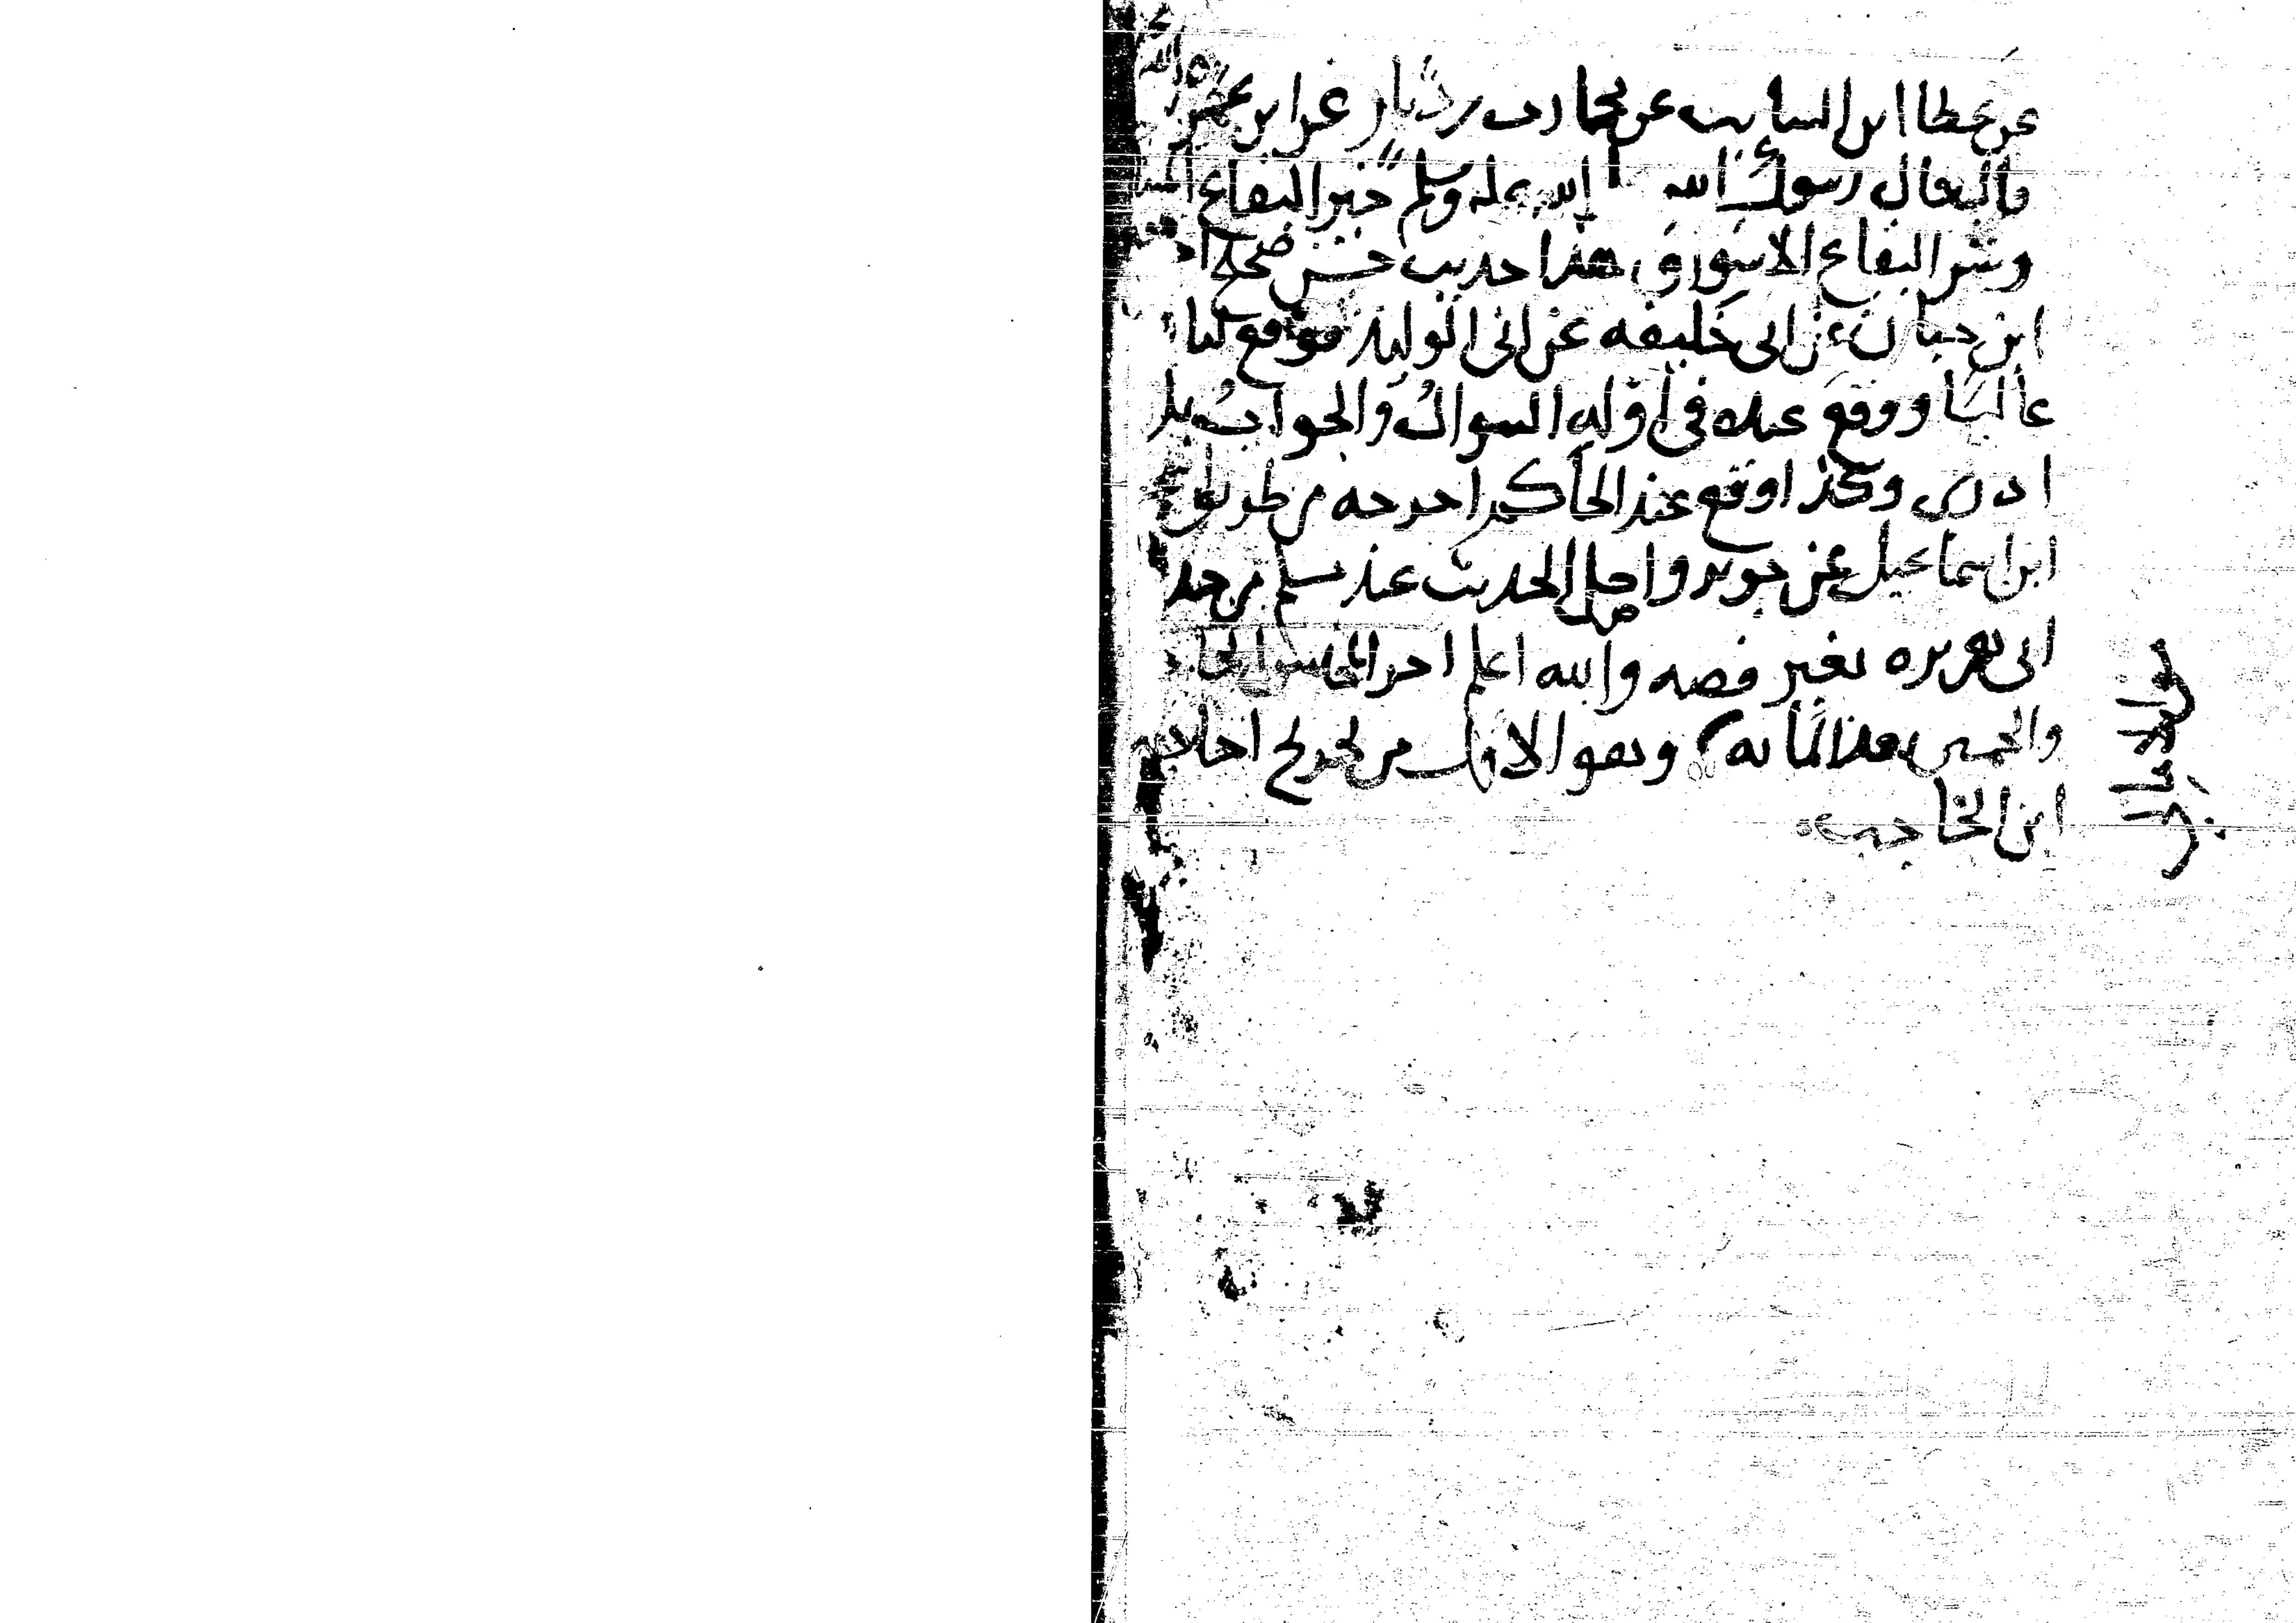 عن عطا ابن السايب عن محارب بن دثار عن ابن عمر
قال قال رسول الله الله عليه وسلم خير البقاع
وشر البقاع الاسواق هذا حديث حسن صحيح
ابن حبان عن ابى خليفه عن ابى الوليد فوقع لنا
عاليا ووقع عنده فى اوله السوال والجواب بلا
ادرى وكذا وقع عند الحاكم اخرجه من طريق
ابن اسماعيل عن جرير واصل الحديث عند مسلم من حد
ابى هريره بغير قصه والله اعلم اخر المجلس
والخمسين بعد المايه وهو الاول من تخريج احاد
ابن الحاجب